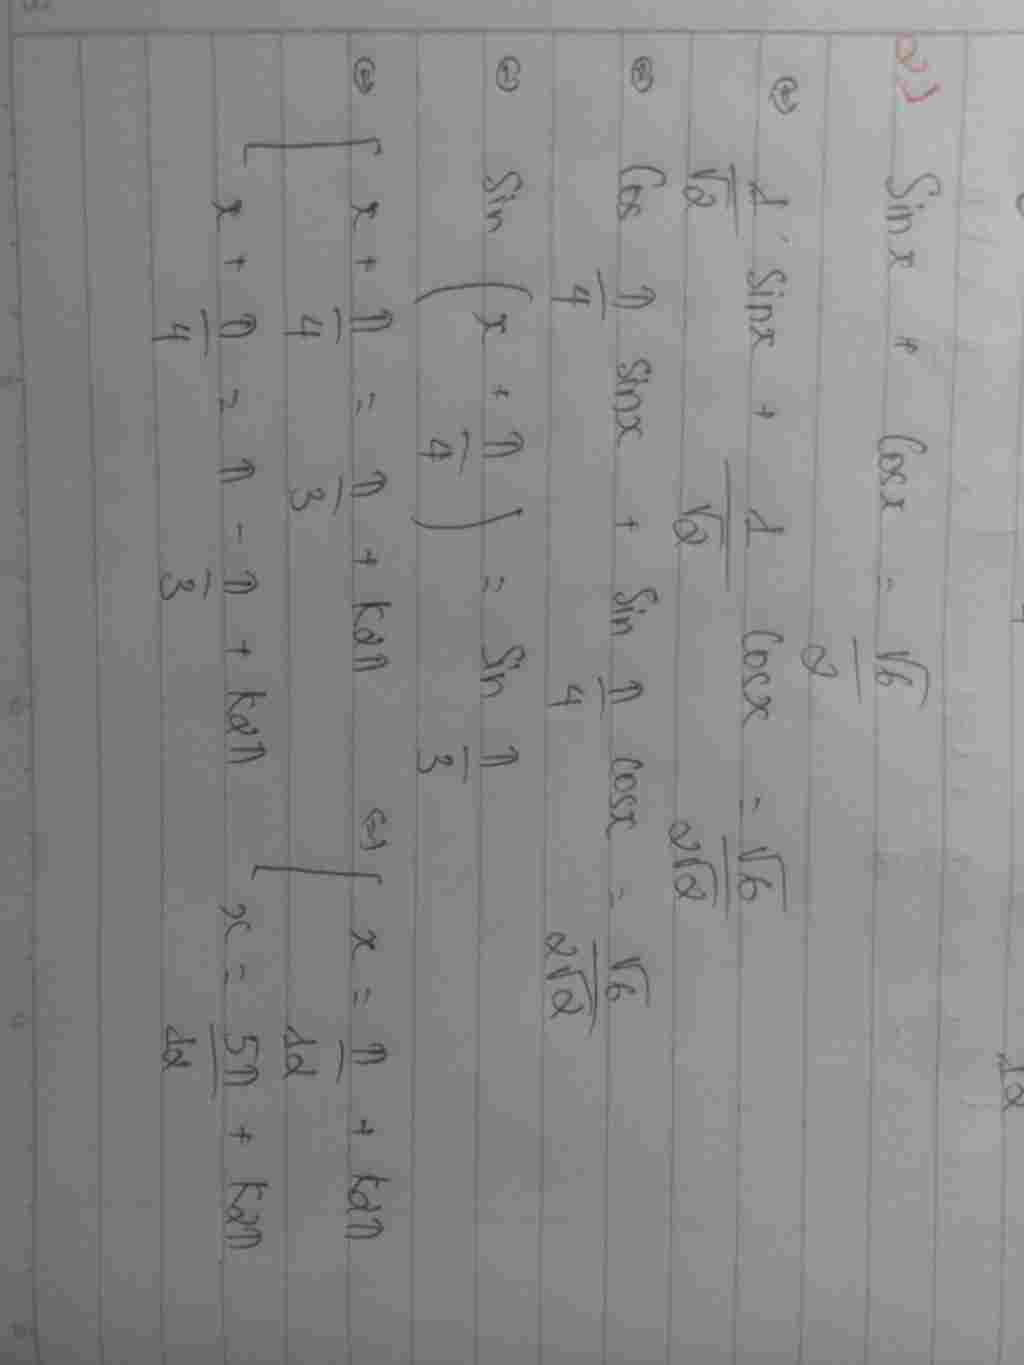 2) Sinx + Cosx = √6/2
⇔ 1/√2 Sinx + 1/√2 Cosx = √6/2√2
⇔ Cos π/4 Sinx + Sin π/4 Cosx = √6/2√2
⇔ Sin (x + π/4) = Sin π/3
⇔ [ x + π/4 = π/3 + k2π ⇔ [ x = π/12 + k2π
x + π/4 = π - π/3 + k2π x = 5π/12 + k2π
12